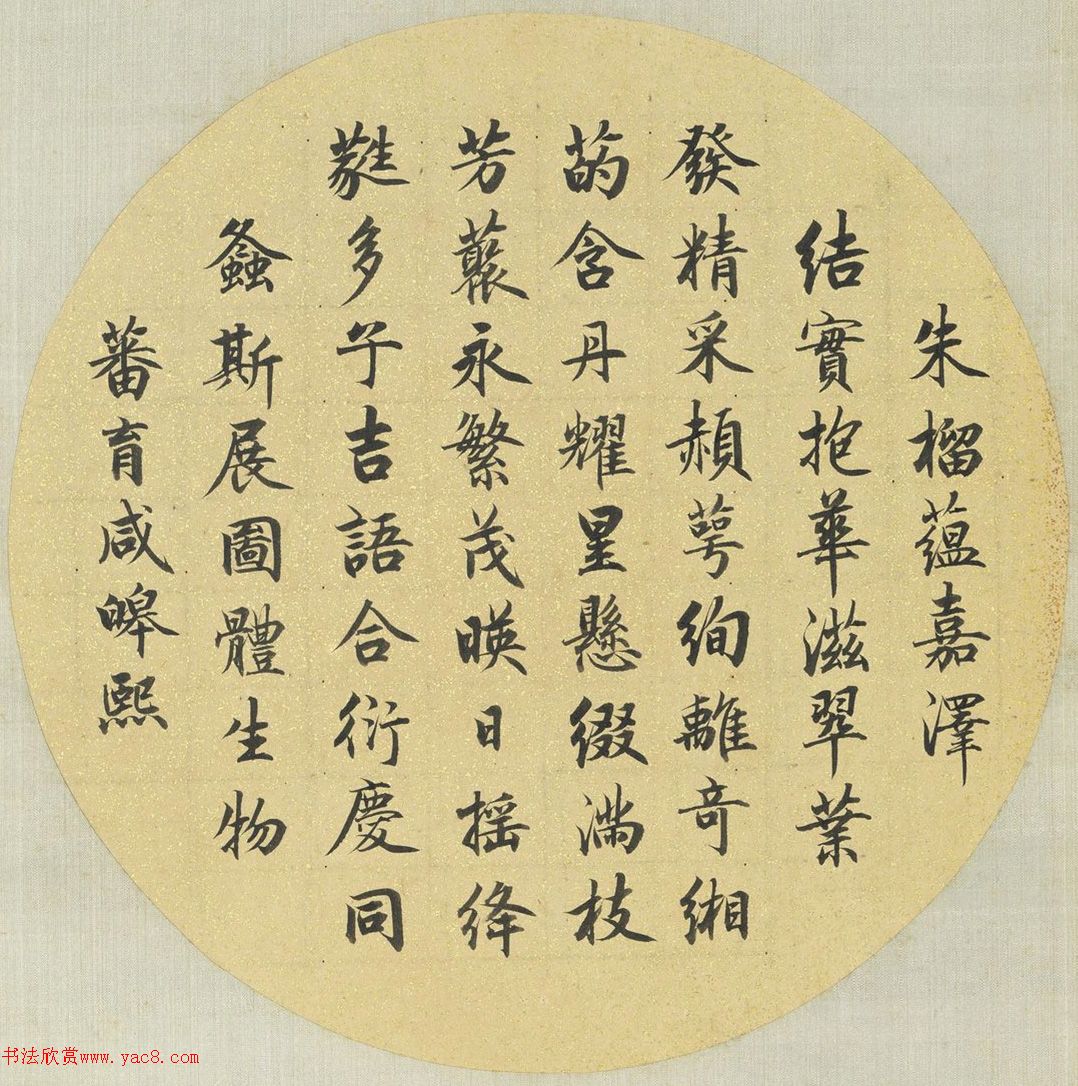 朱榴蘊嘉澤
結實抱華滋翠葉
發精采赬萼絢離奇緗
菂含丹耀星懸綴滿枝
芳藂永繁茂暎日搖絳
蕤多子吉語合衍慶同
螽斯展圖體生物
蕃育咸皞熙
书法欣赏www.yac8.com